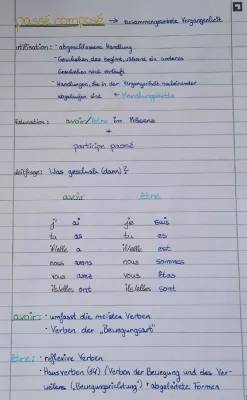 passé composé → zusammengesetzte Vergangenheit
utilisation: · abgeschlossene Handlung
· Geschehen das beginnt, während ein anderes
Geschehen noch verläuft
· Handlungen, die in der Vergangenheit nacheinander
abgelaufen sind ← Handlungskette
avoir/être im Präsens
+
participe passé
Leitfrage: Was geschah (dann)?
avoir être
j' ai je suis
tu as tu es
il/elle a il/elle est
nous avons nous sommes
vous avez vous êtes
ils/elles ont ils/elles sont
avoir: · umfasst die meisten Verben
· Verben der „Bewegungsart"
être: · reflexive Verben
· Hausverben (14) (Verben der Bewegung und des Ver-
weilens („Bewegungsrichtung") + abgeleitete Formen